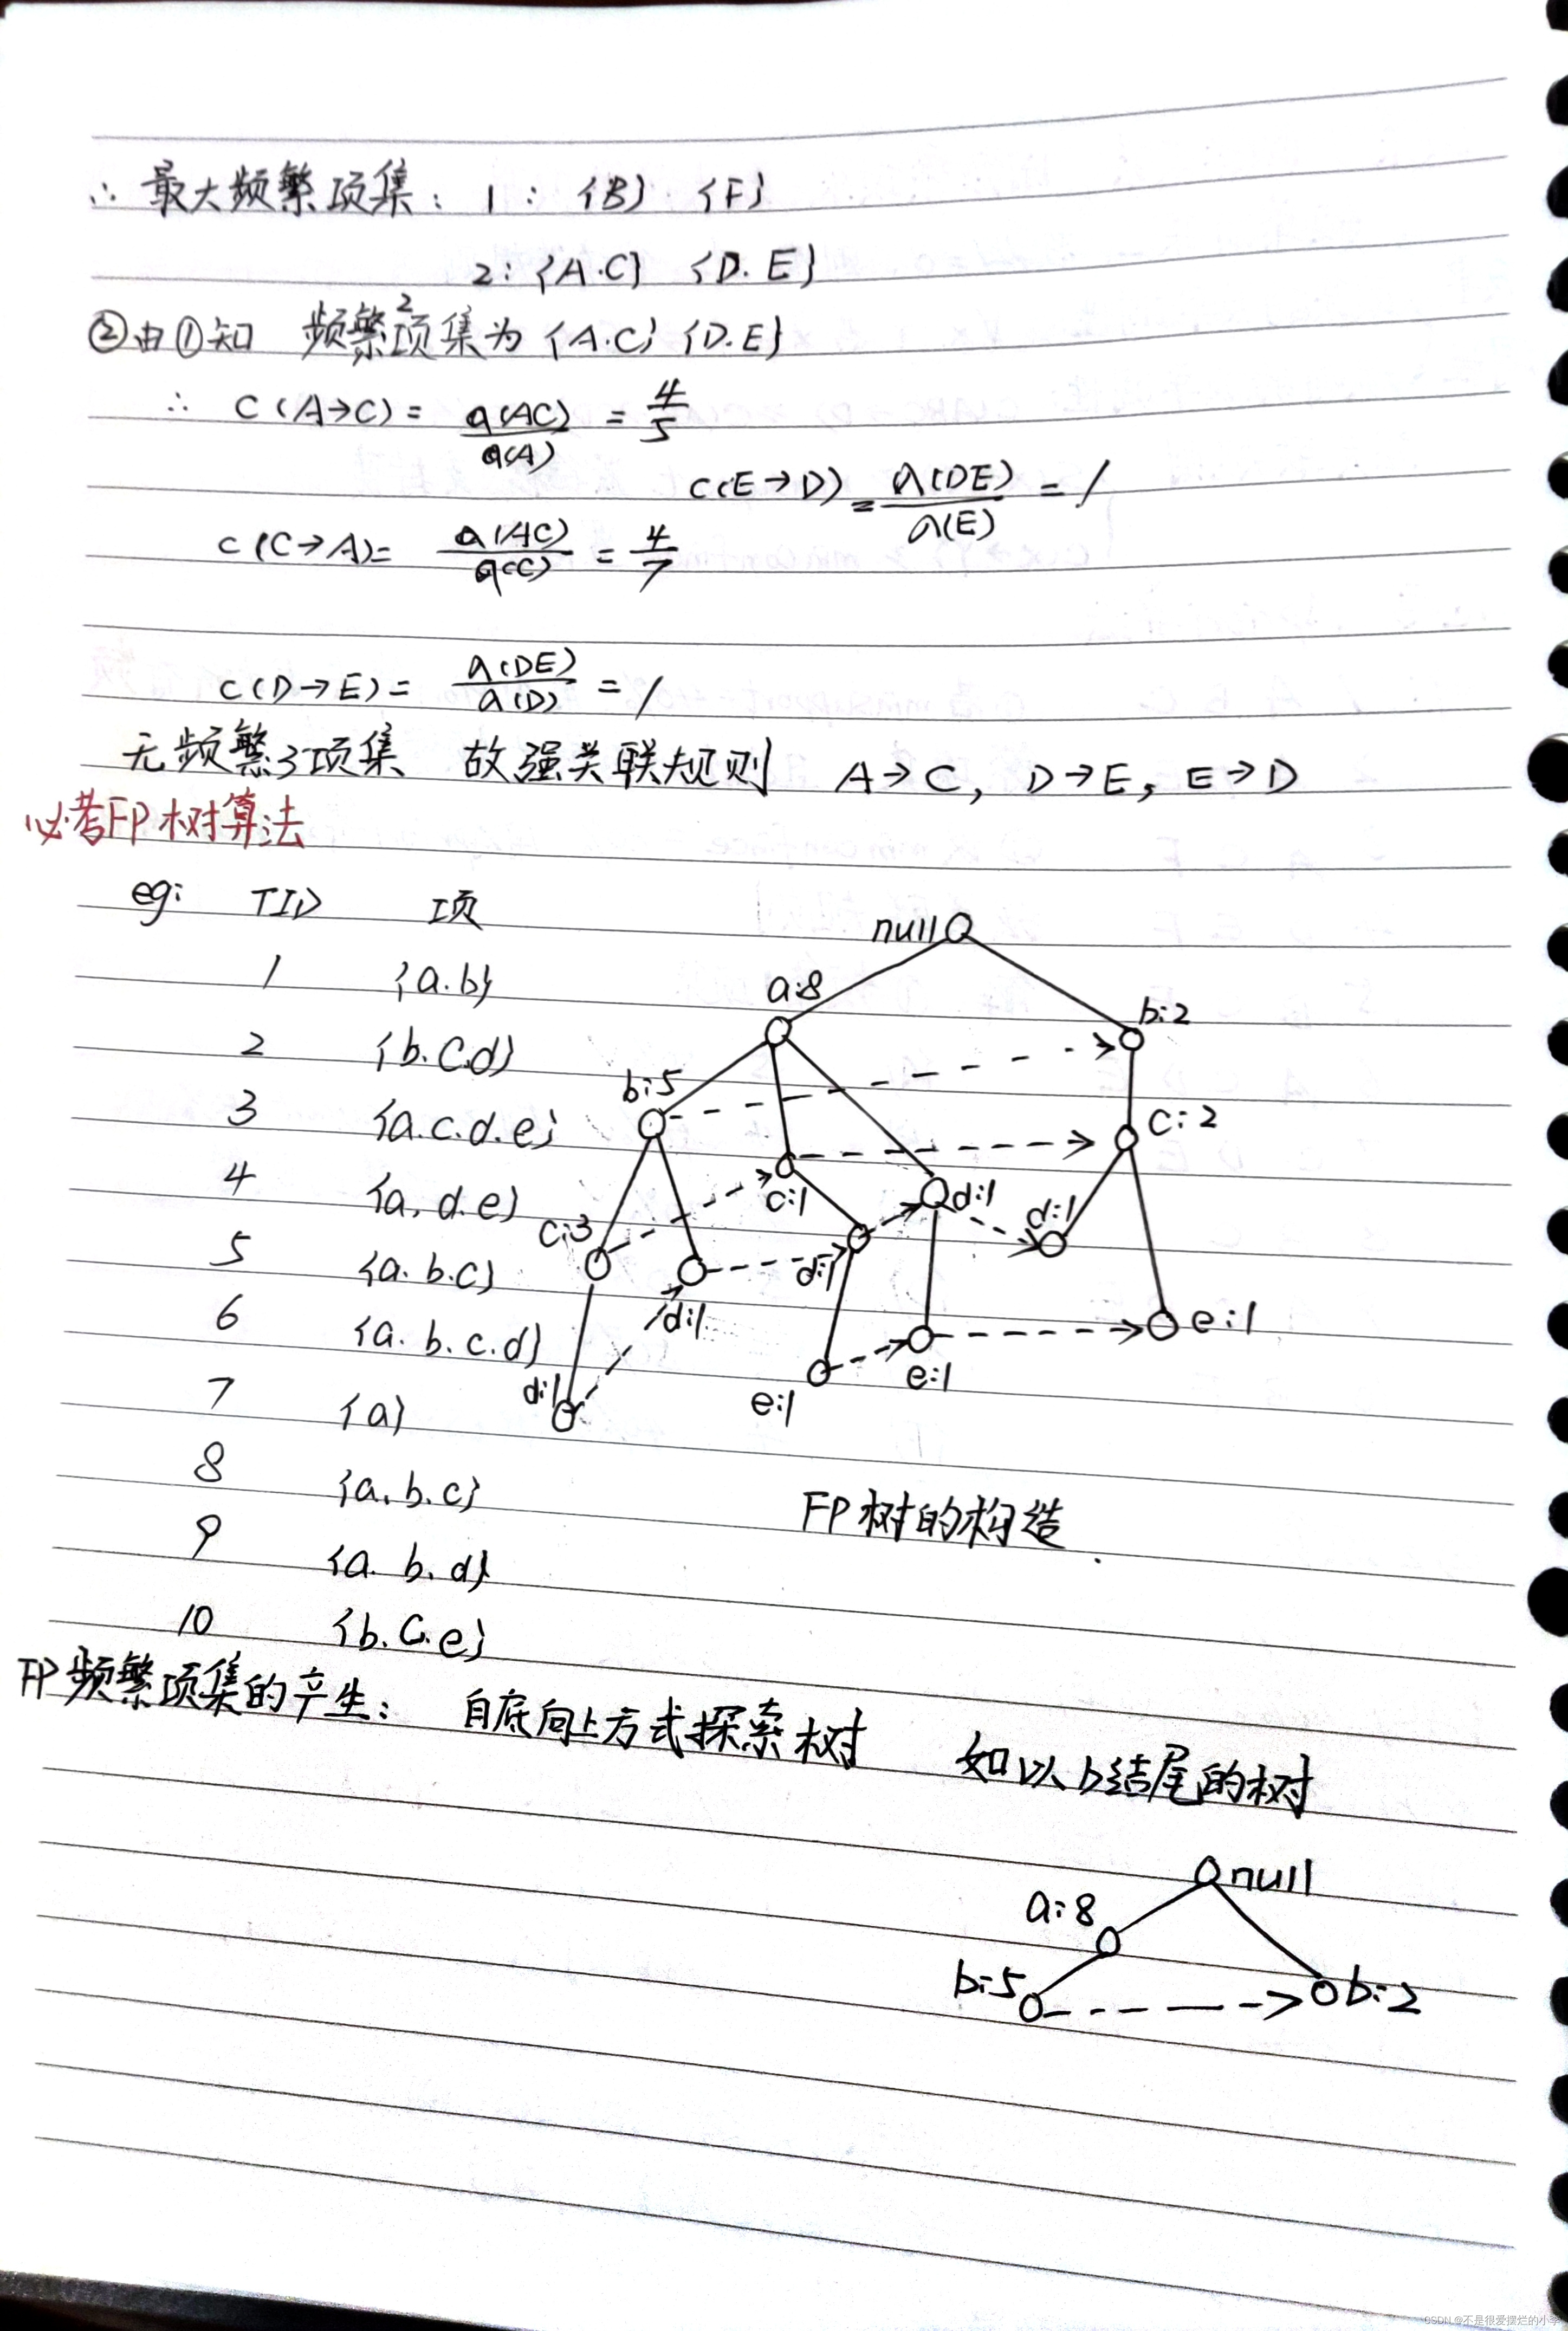 ∴ 最大频繁项集: 1: {B} {F}
2: {A.C} {D.E}
②由①知 频繁2项集为 {A.C} {D.E}
∴ C(A→C) = σ(AC)/σ(A) = 4/5
C(E→D) = σ(DE)/σ(E) = 1
C(C→A) = σ(AC)/σ(C) = 4/7
C(D→E) = σ(DE)/σ(D) = 1
无频繁3项集 故强关联规则 A→C, D→E, E→D
必考FP树算法
eg: TID 项
1 {a.b}
2 {b.c.d}
3 {a.c.d.e}
4 {a,d.e}
5 {a.b.c}
6 {a.b.c.d}
7 {a}
8 {a.b.c}
9 {a.b.d}
10 {b.c.e}
null
a:8
b:2
b:5
c:2
c:1
d:1
d:1
c:3
d:1
d:1
e:1
d:1
e:1
e:1
FP树的构造
FP频繁项集的产生: 自底向上方式探索树 如以b结尾的树
null
a:8
b:5
b:2
CSDN @不是很爱摆烂的小李